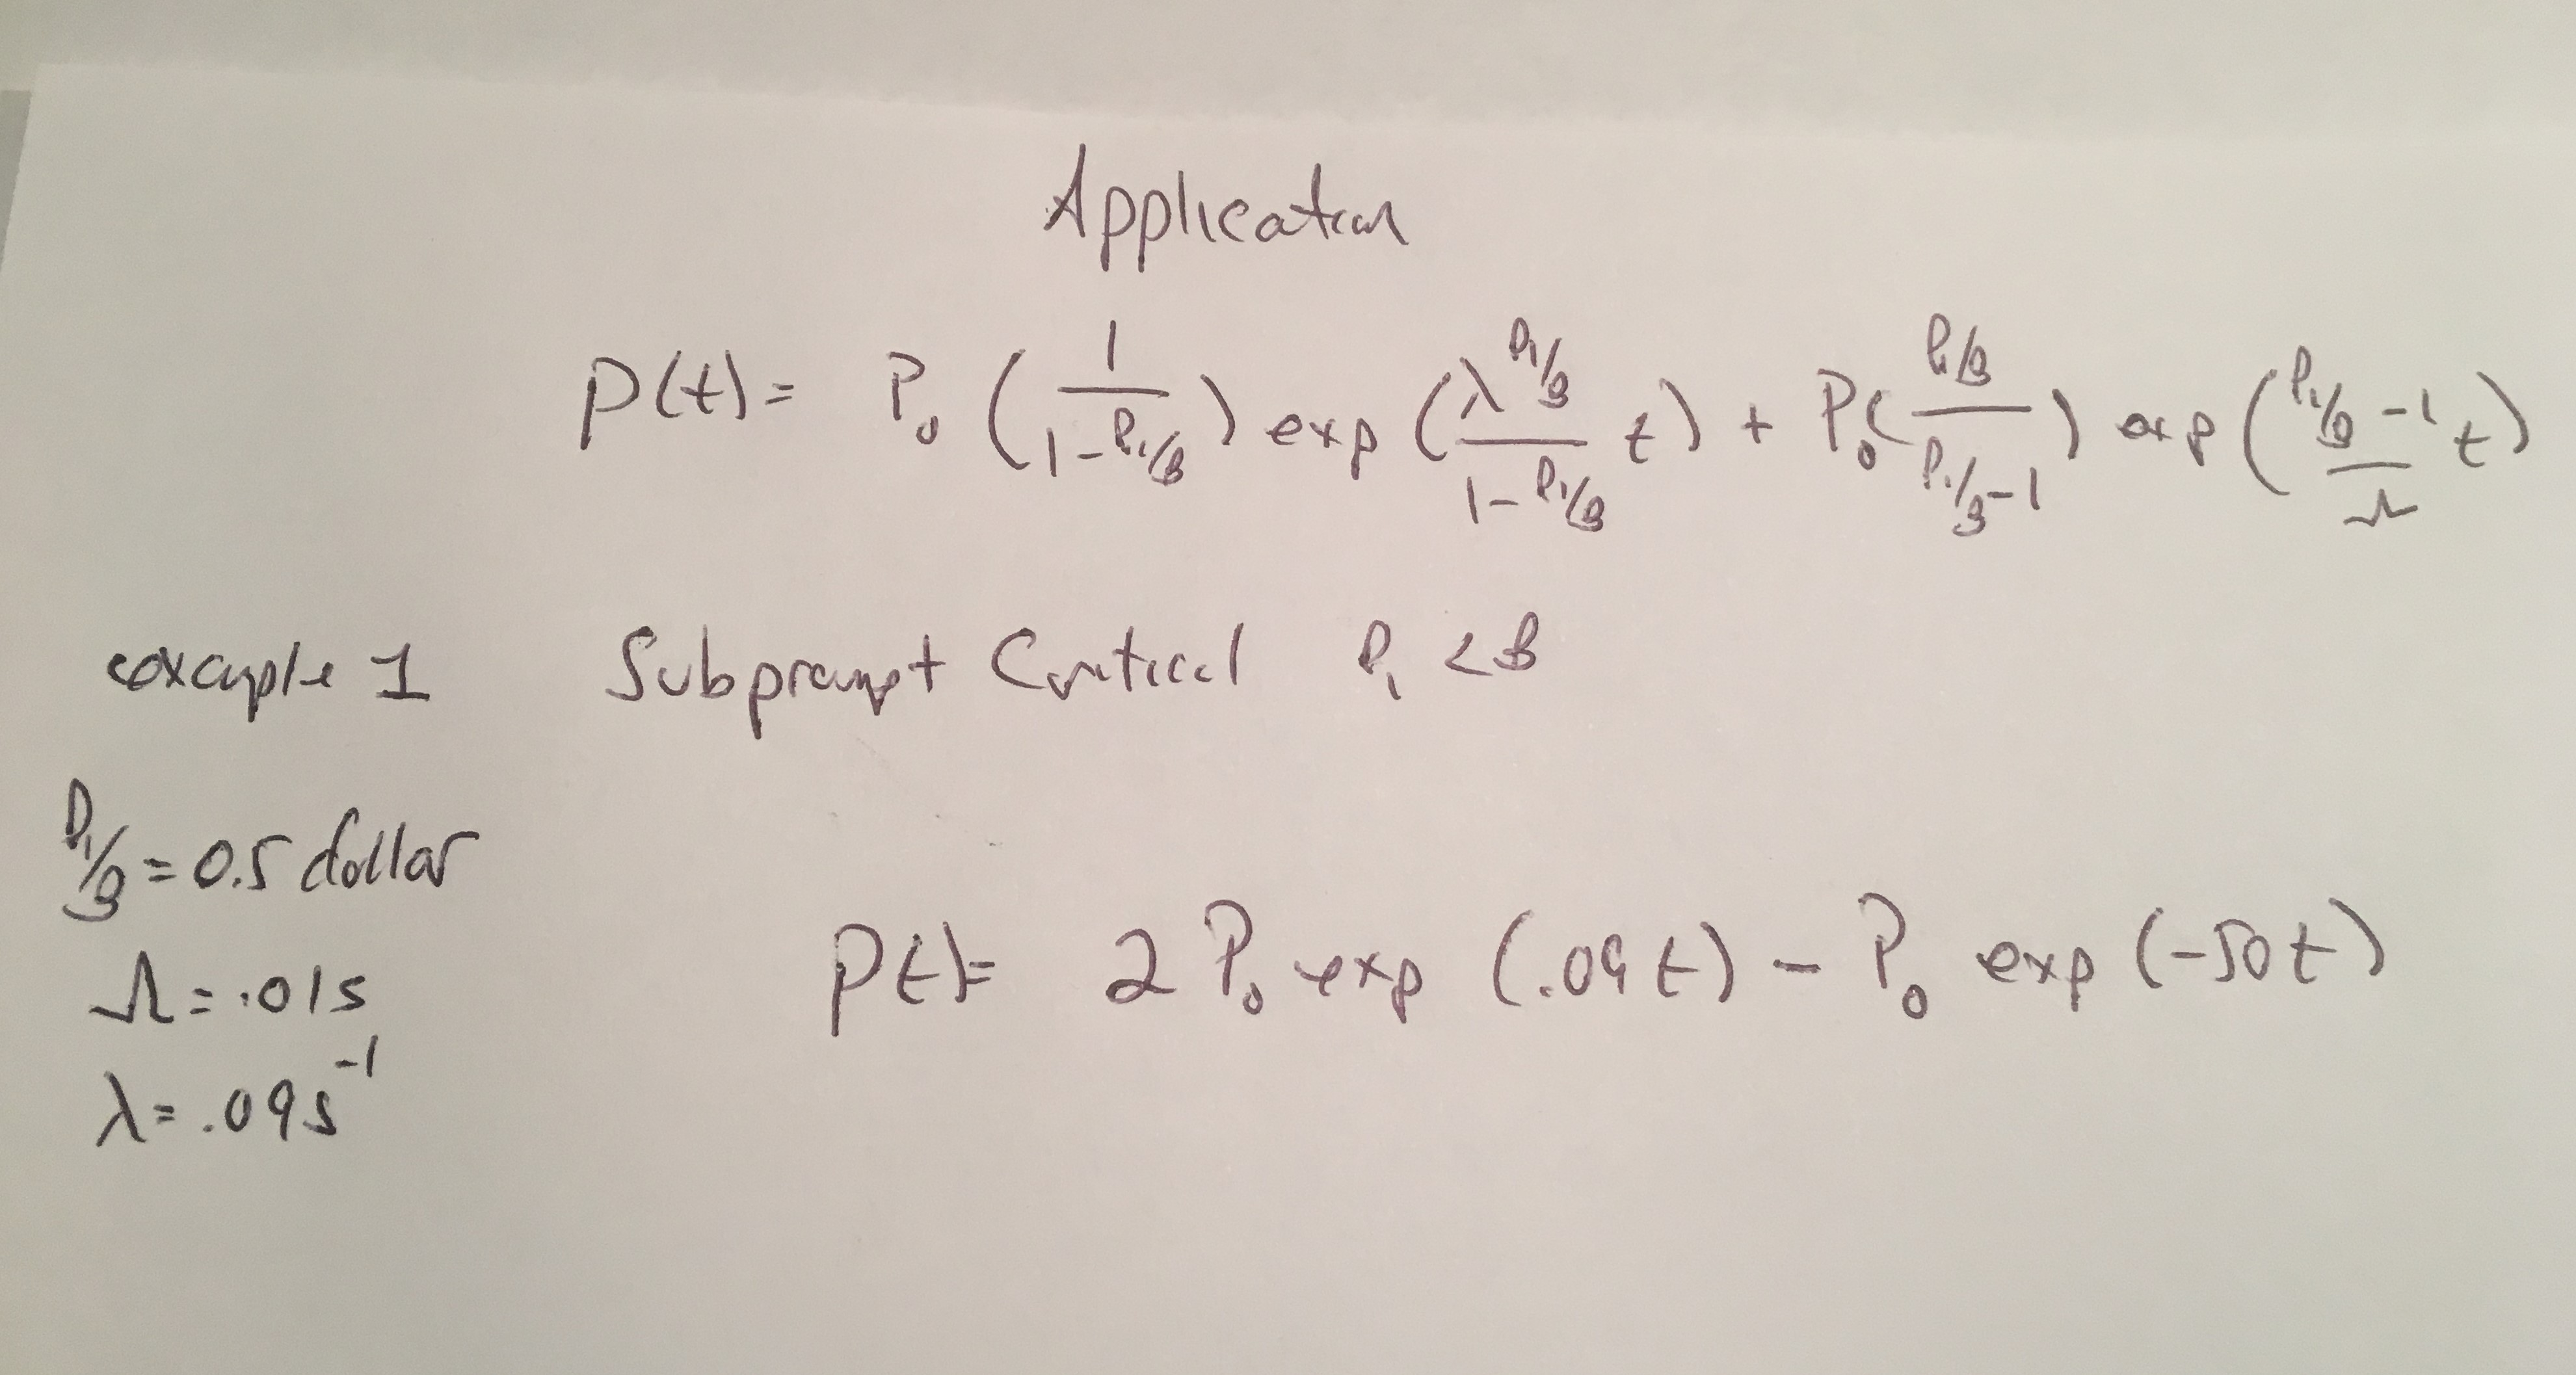 Application
P(t) = P₀ (1 / (1 - ρ₁/β)) exp (λ ρ₁/β / (1 - ρ₁/β) t) + P₀ (ρ₁/β / (ρ₁/β - 1)) exp ((ρ₁/β - 1) / Λ t)
example 1 Subprompt Critical ρ₁ < β
ρ₁/β = 0.5 dollar
Λ = .01s
P(t) = 2 P₀ exp (.09t) - P₀ exp (-50t)
λ = .09s⁻¹